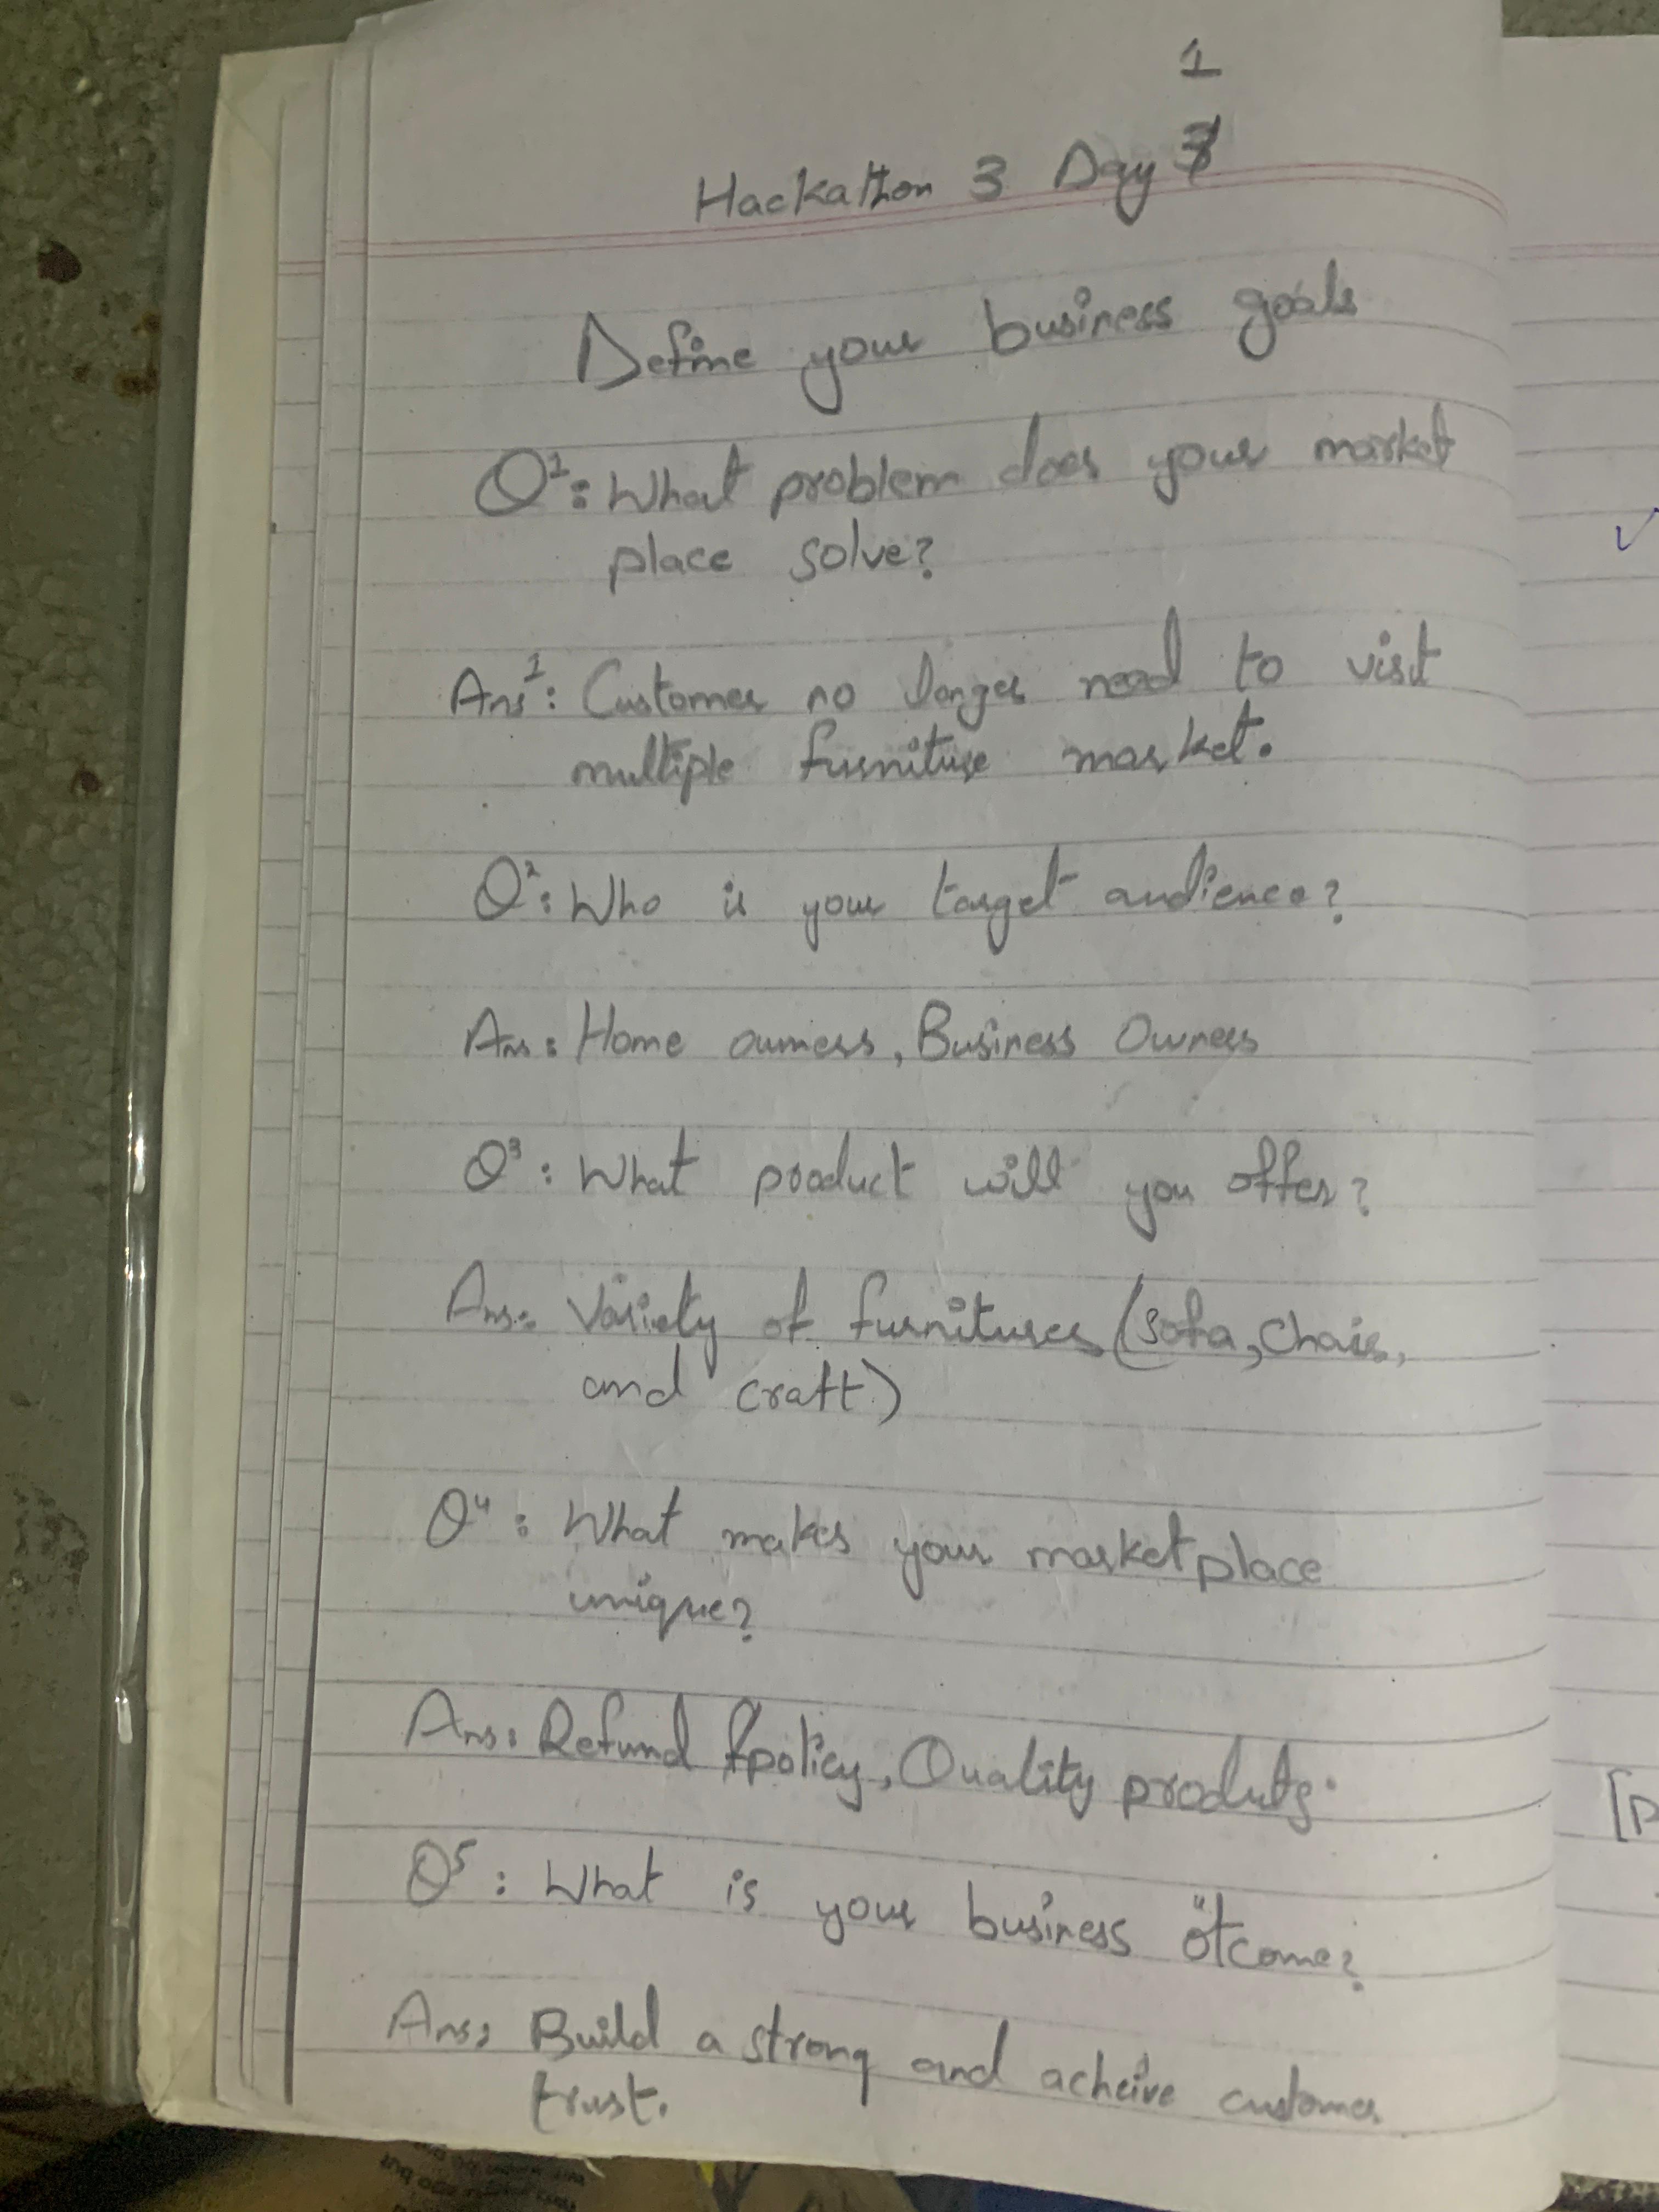 1
Hackathon 3 Day
Define your business goals
Q1: What problem does your market
place solve?
Ans1: Customer no longer need to visit
multiple furniture market.
Q2: Who is your target audience?
Ans: Home owners, Business Owners
Q3: What product will you offer?
Ans: Variety of furnitures (sofa, chairs,
and craft)
Q4: What makes your marketplace
unique?
Ans: Refund policy, Quality produts.
Q5: What is your business otcome?
Ans: Build a strong and acheive customer
trust.